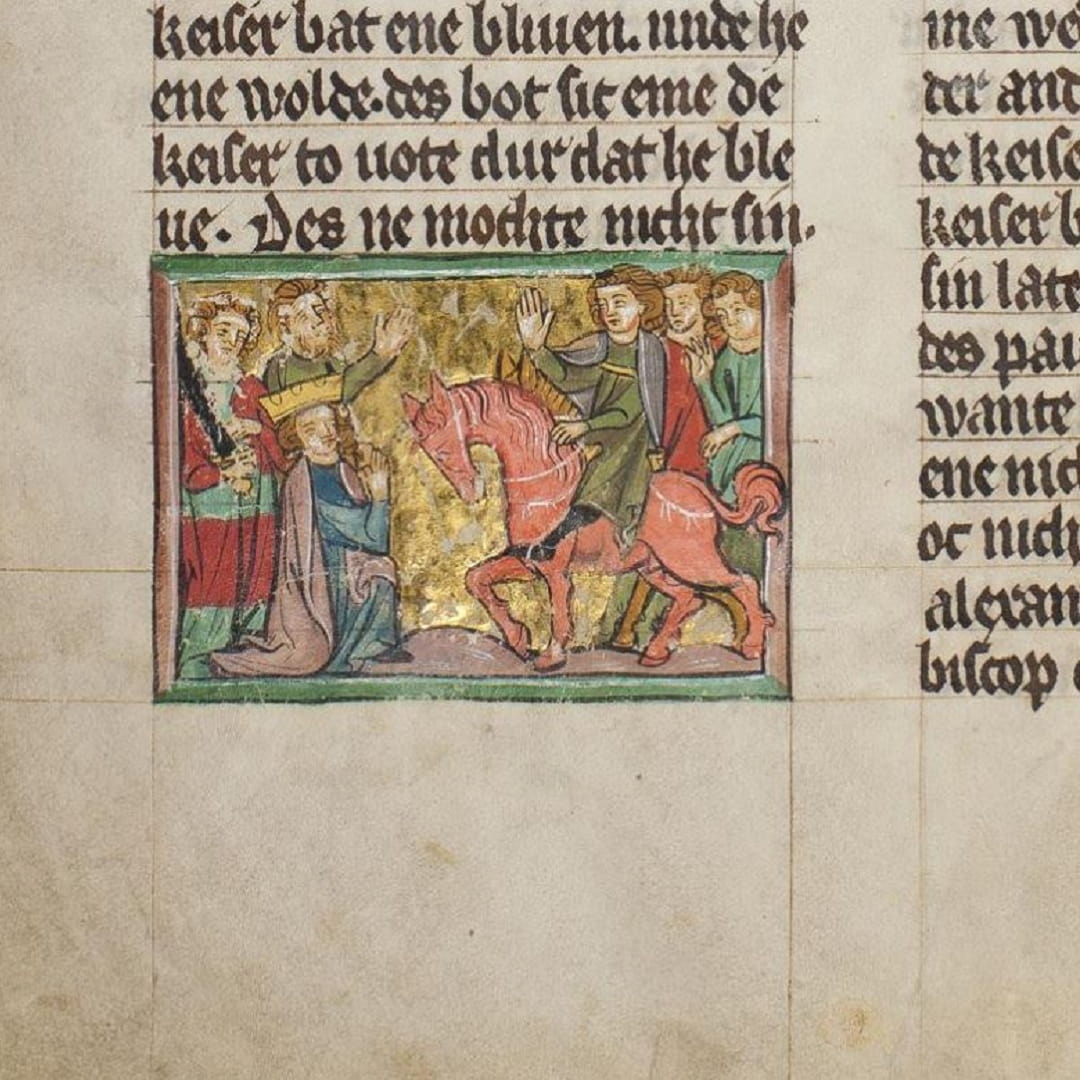 keiser bat ene bliuen. unde he
ene wolde. des bot sic eme de
keiser to uote dur dat he ble
ue. Des ne mochte nicht sin.
me
der
de keise
keiser b
sin late
des pau
wante
ene nich
oc nich
alexan
biscop